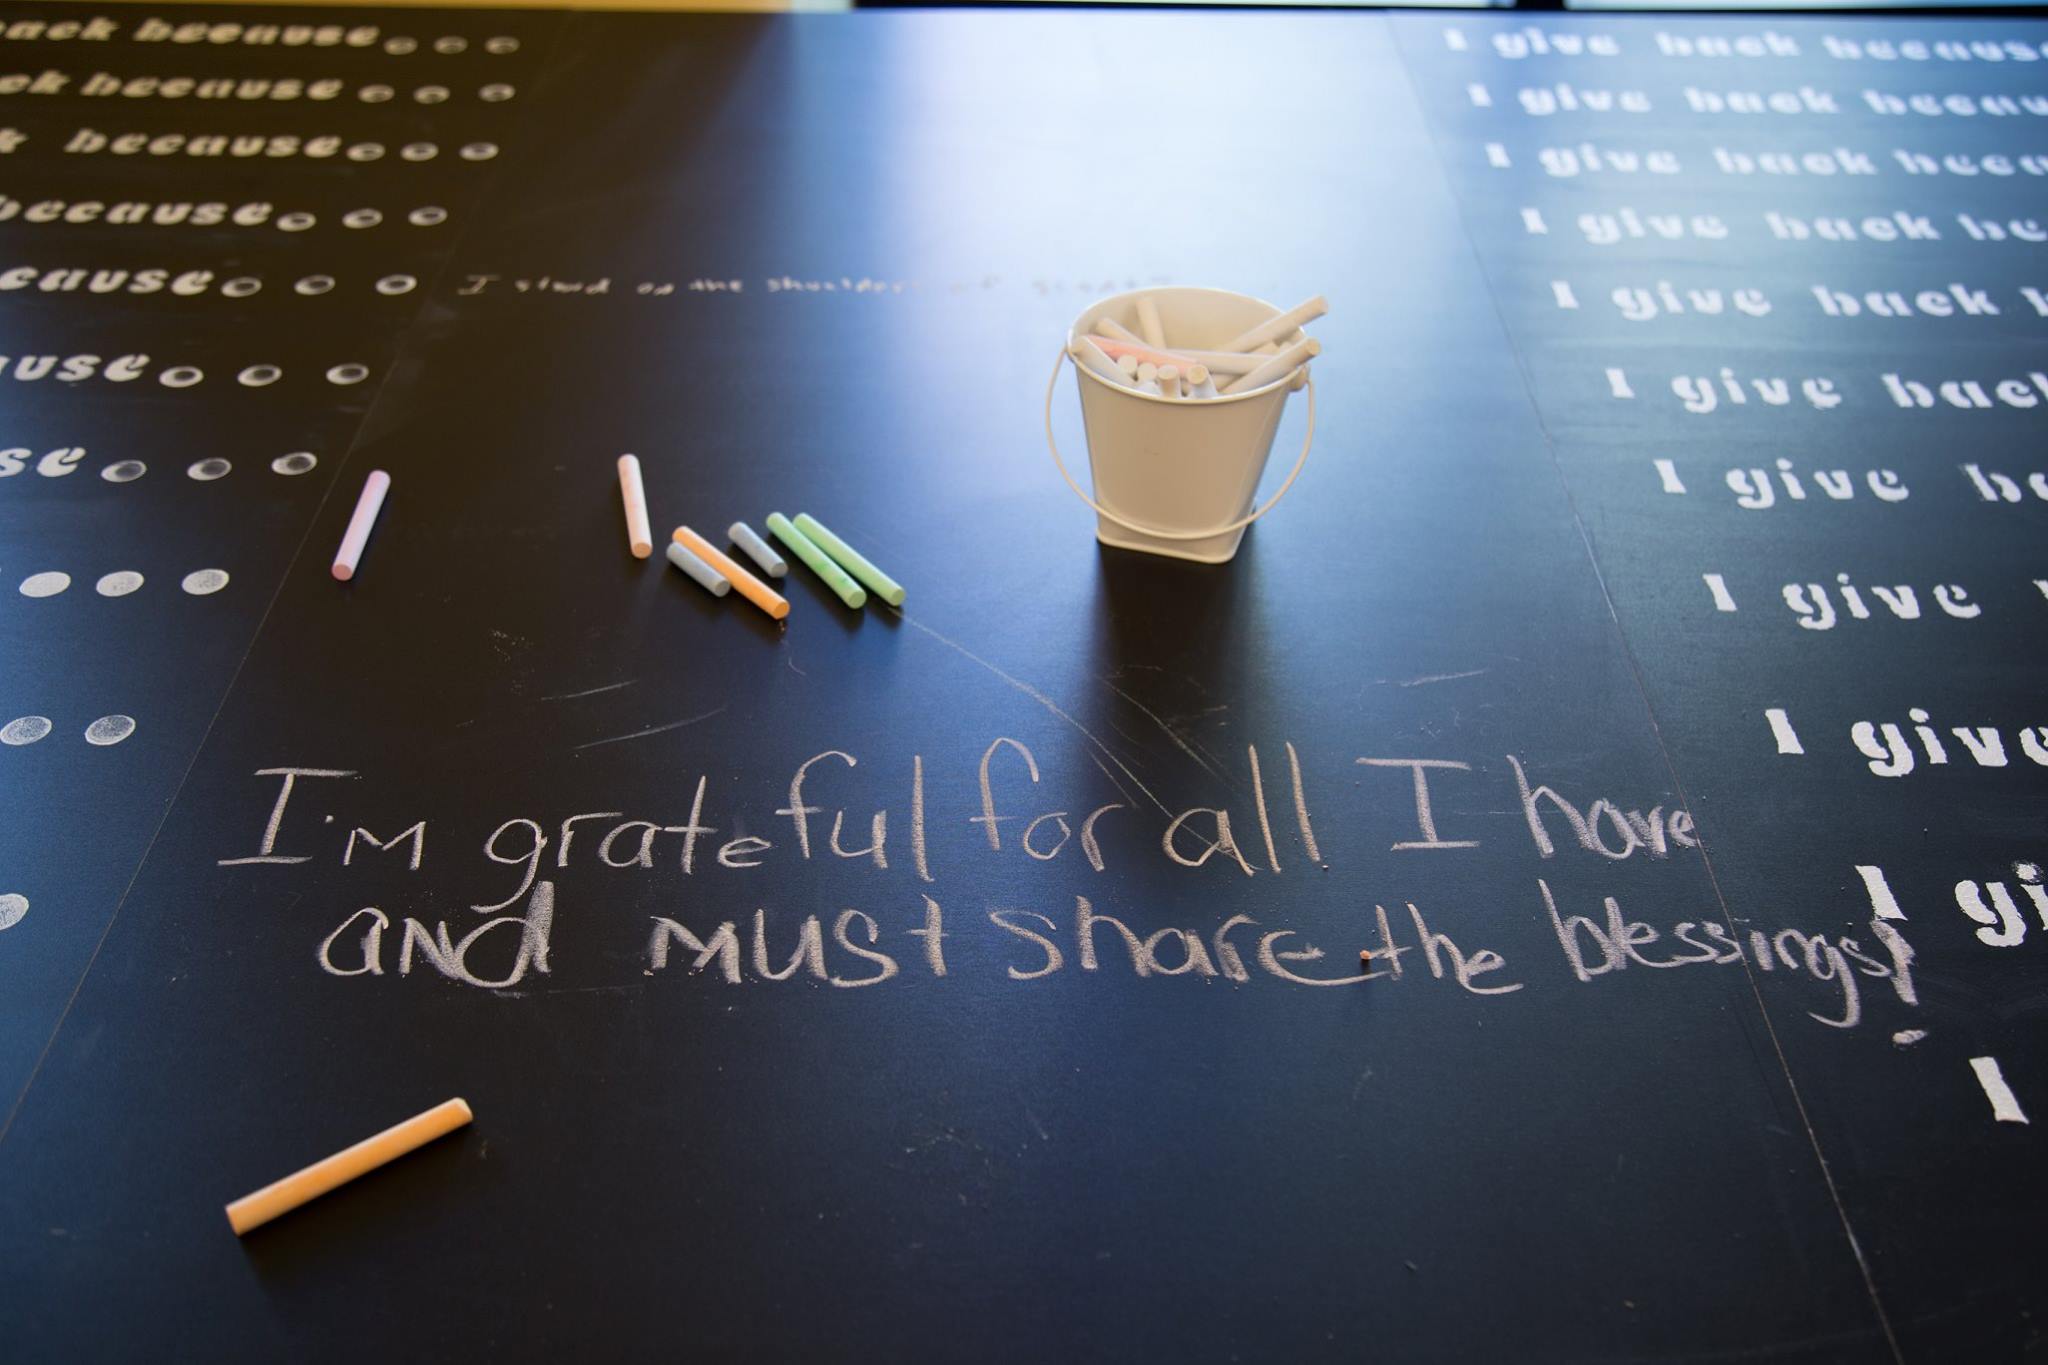 ack because...
ck because...
k because...
because...
cause...
use...
se...
I give back because
I give back becau
I give back beca
I give back be
I give back b
I give back
I give ba
I give
I give
I gi
I
I stand on the shoulders of giants
I'm grateful for all I have
and must share the blessings!